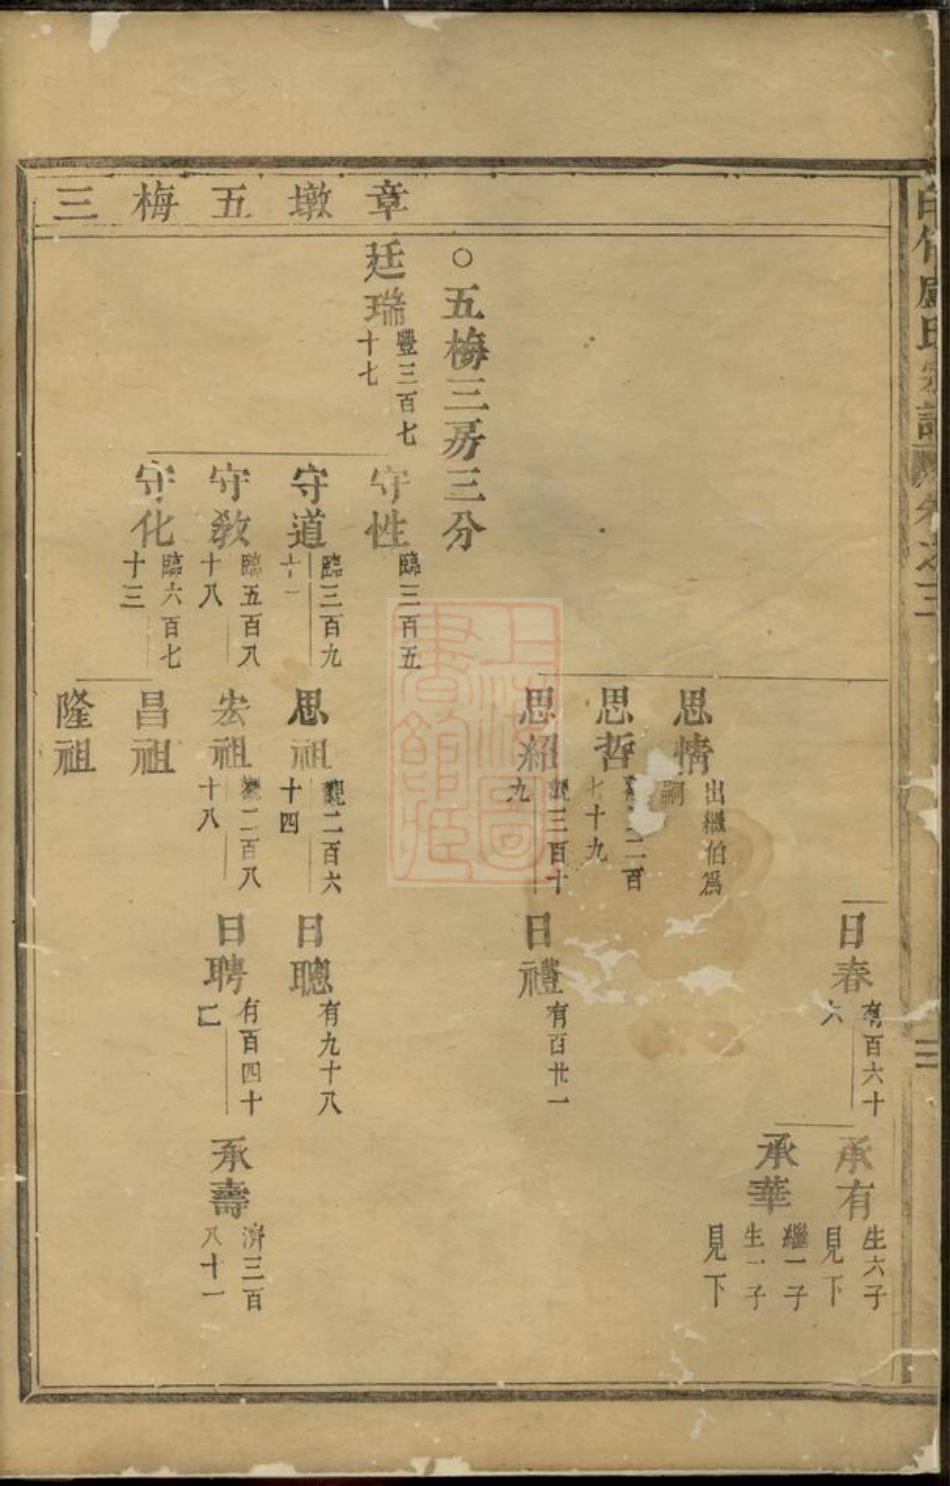 盧氏宗譜
卷之三
三
章墩五梅三
日春 有百六十六
承有 生六子見下
承華 繼一子生一子見下
思情 出繼伯爲嗣
思哲 二百七十九
思紹 觀三百十九
日禮 有百廿一
○五梅三房三分
廷瑞 豐三百七十七
守性 臨三百五
守道 臨三百九十一
思祖 觀二百六十四
日聰 有九十八
守教 臨五百八十八
宏祖 觀二百八十八
日聘 有百四十二
承壽 濟三百八十一
守化 臨六百七十三
昌祖
隆祖
上海圖書館藏